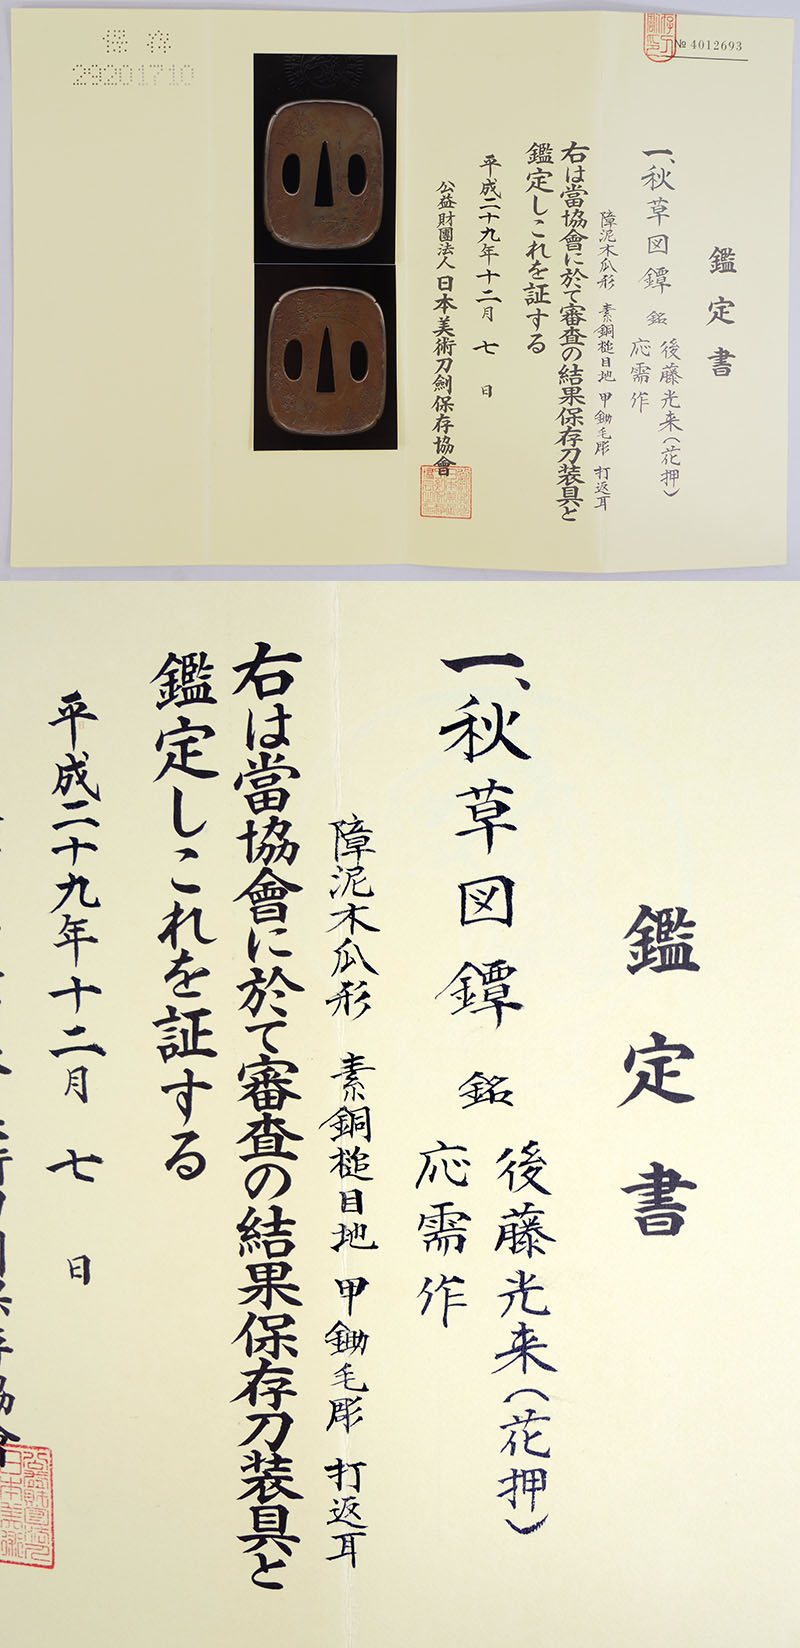 保存
29201710
№ 4012693
鑑定書
一、秋草図鐔 銘 後藤光来（花押）
応需作
障泥木瓜形 素銅槌目地 甲鋤毛彫 打返耳
右は當協會に於て審査の結果保存刀装具と
鑑定しこれを証する
平成二十九年十二月七日
公益財團法人日本美術刀劍保存協會
鑑定書
一、秋草図鐔 銘 後藤光来（花押）
応需作
障泥木瓜形 素銅槌目地 甲鋤毛彫 打返耳
右は當協會に於て審査の結果保存刀装具と
鑑定しこれを証する
平成二十九年十二月七日